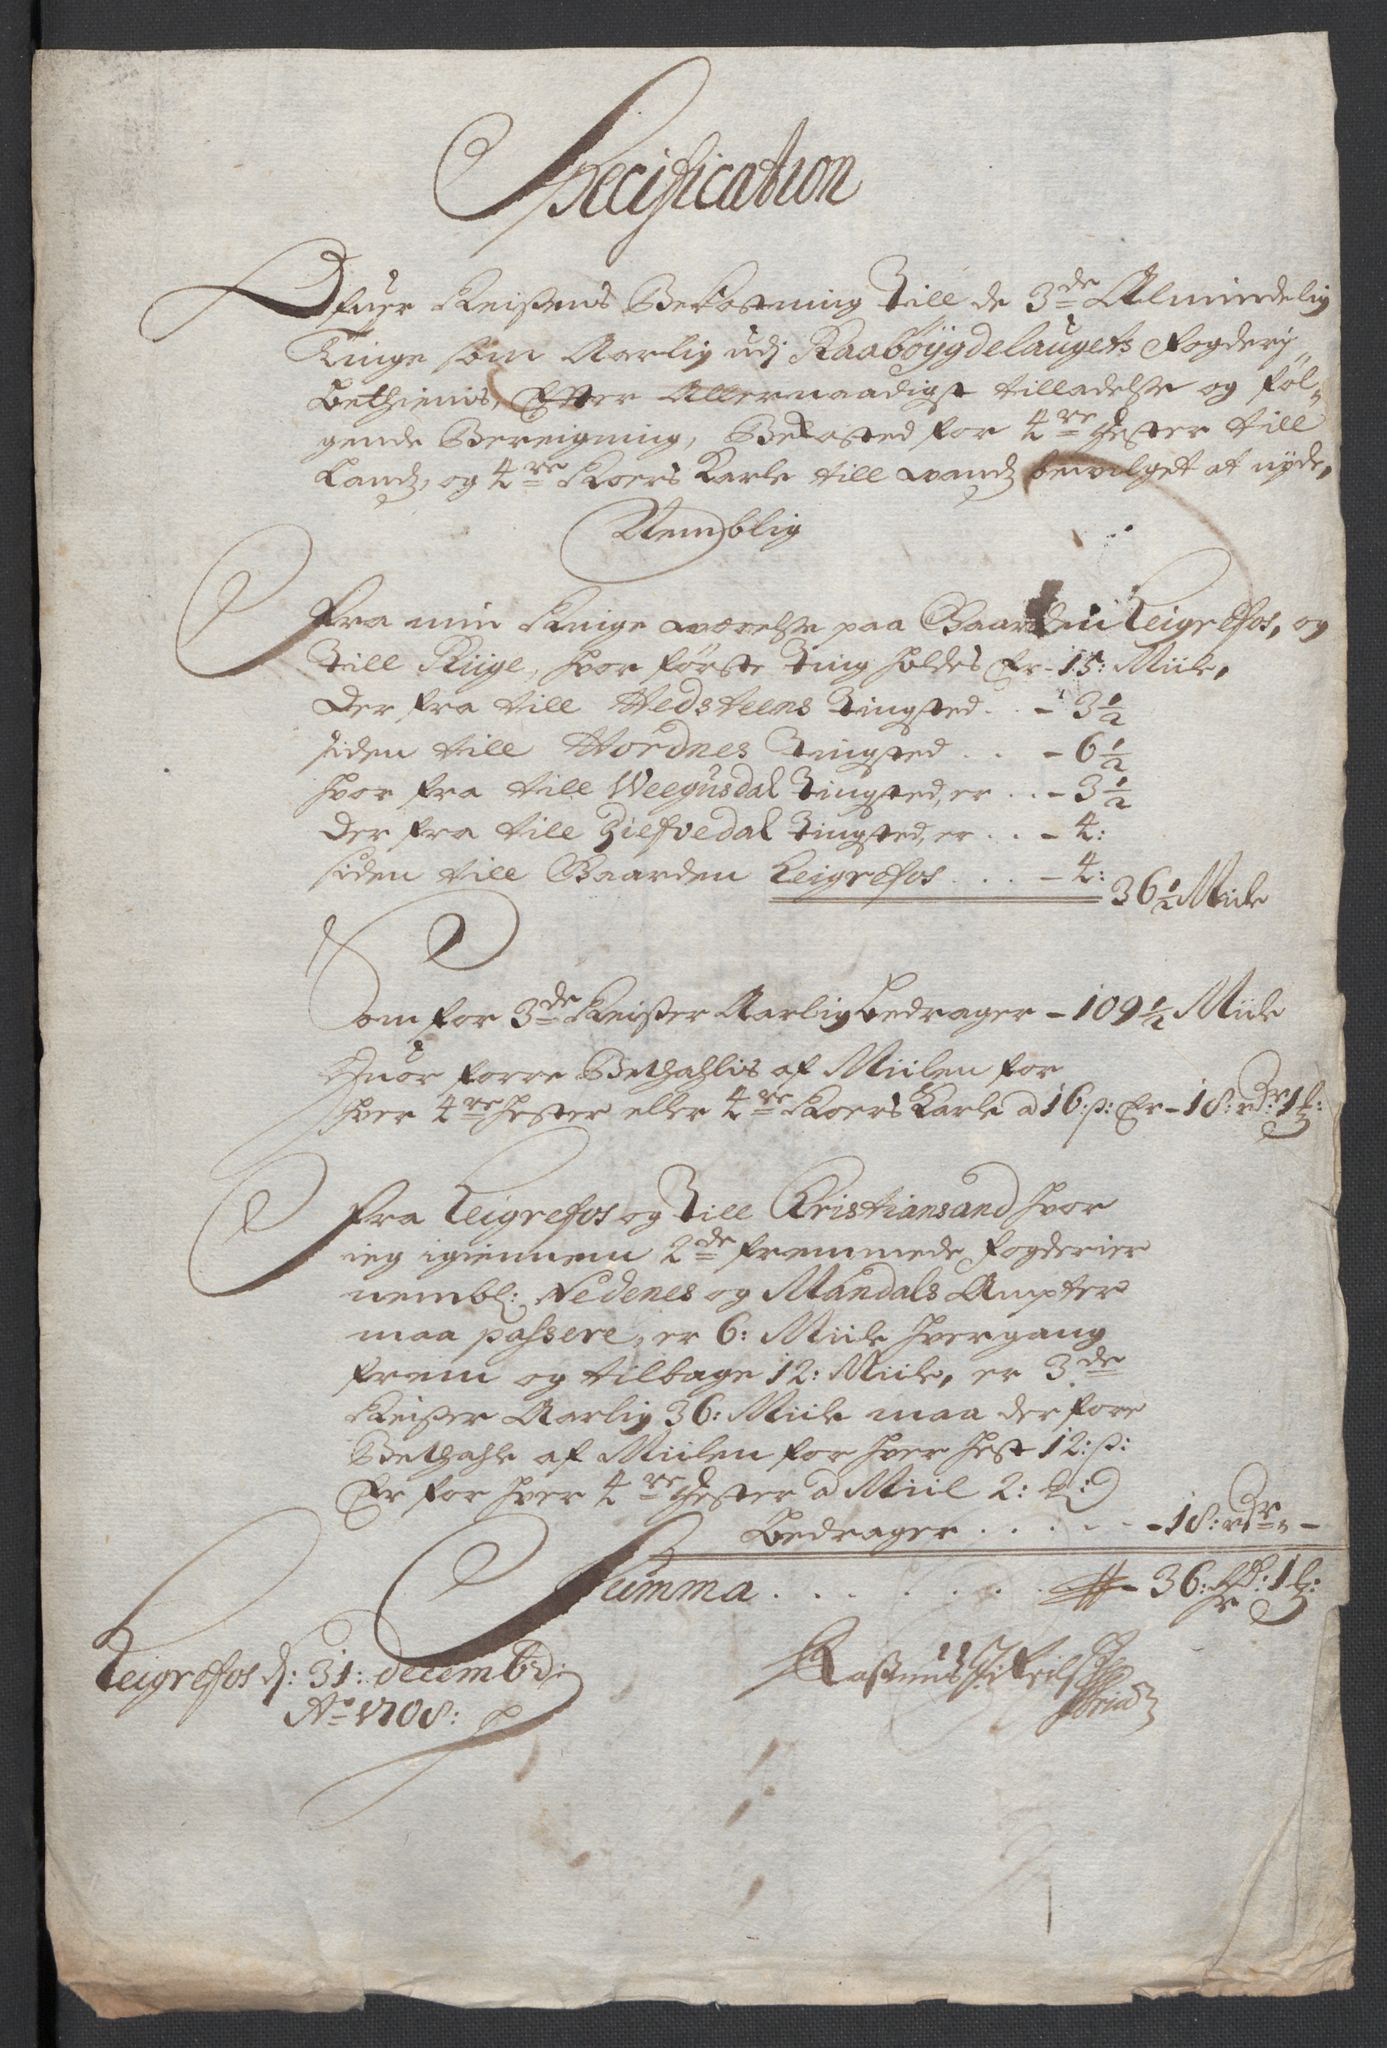 Specification
Ofuer Reisens Bekostning Till de 3de Almindelig
Tinge som Aarlig udj Raabøygdelaugets fogderj
bethienis, Efter Allernaadigst tilladelse og føl-
gende Beregning, Bekosted for 4re Hester till
Landz, og 4re Roers Karle till vandz bevilget at nyde,
Nemblig
Fra min ringe værelse paa Gaarden Leigrefos, og
till Riige, hvor første Ting holdes Er - 15: Miile,
der fra till Hedsteens Tingsted . . - 3½
siden till Hordnes Tingsted . . - 6½
hvor fra till Weegusdal Tingsted, er . . - 3½
der fra till Zielfvedal Tingsted, er . . - 4:
siden till Gaarden Leigrefos . . . - 4:
36½ Miile
Som for 3de Reiser Aarlig bedrager - 109½ Miile
Huor forre Bethahlis af Miilen for
hver 4re hester eller 4re Roers Karle a 16: s: Er - 18: rdr 1 :
Fra Leigrefos og Till Kristiansand hvor
ieg igiennem 2de fremmede fogderier
nembl: Nedenes og Mandals Ampter
maa passere, er 6: Miile hvergang
frem og tilbage 12: Miile, er 3de
Reiser Aarlig 36: Miile maa der fore
Bethahle af Miilen for hver hest 12: s:
Er for hver 4re Hester a Miil 2:
bedrager . . . . - 18: rdr - -
Summa . . . . . . - 36: rd: 1 :
Leigrefos d: 31: decemb:
Ao 1708:
Rasmus